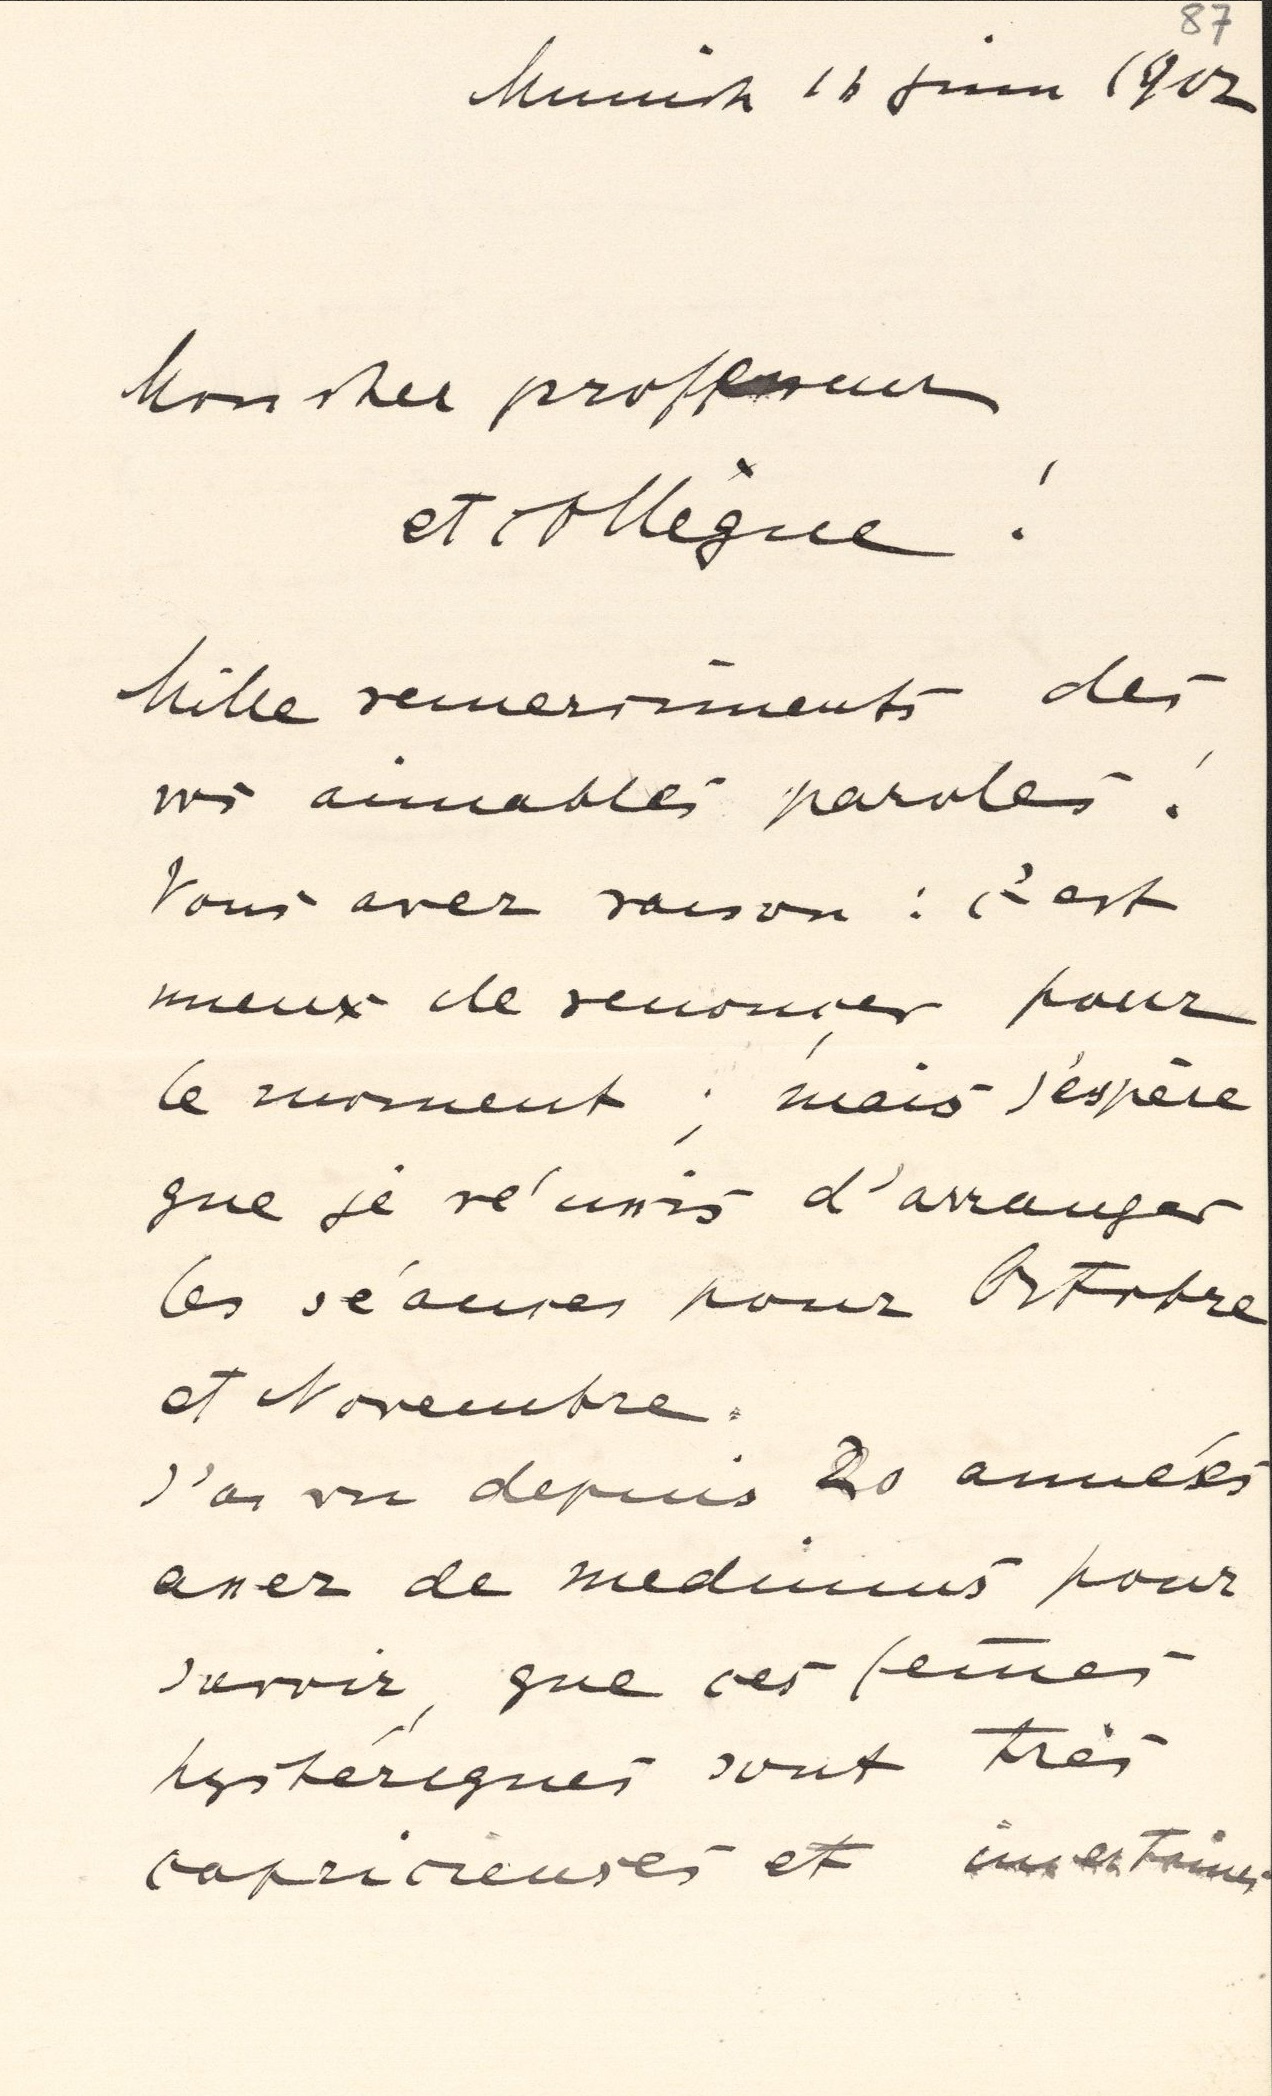 87
Munich 16 juin 1902
Mon cher professeur
et collègue !
Mille remerciments des
vos aimables paroles !
Vous avez raison : c'est
mieux de renonçer pour
le moment ; mais j'espère
que je réussis d'arranger
les séances pour Octobre
et Novembre.
J'ai vu depuis 20 années
assez de mediums pour
savoir, que ces femes
hystériques sont très
capricieuses et incertaines